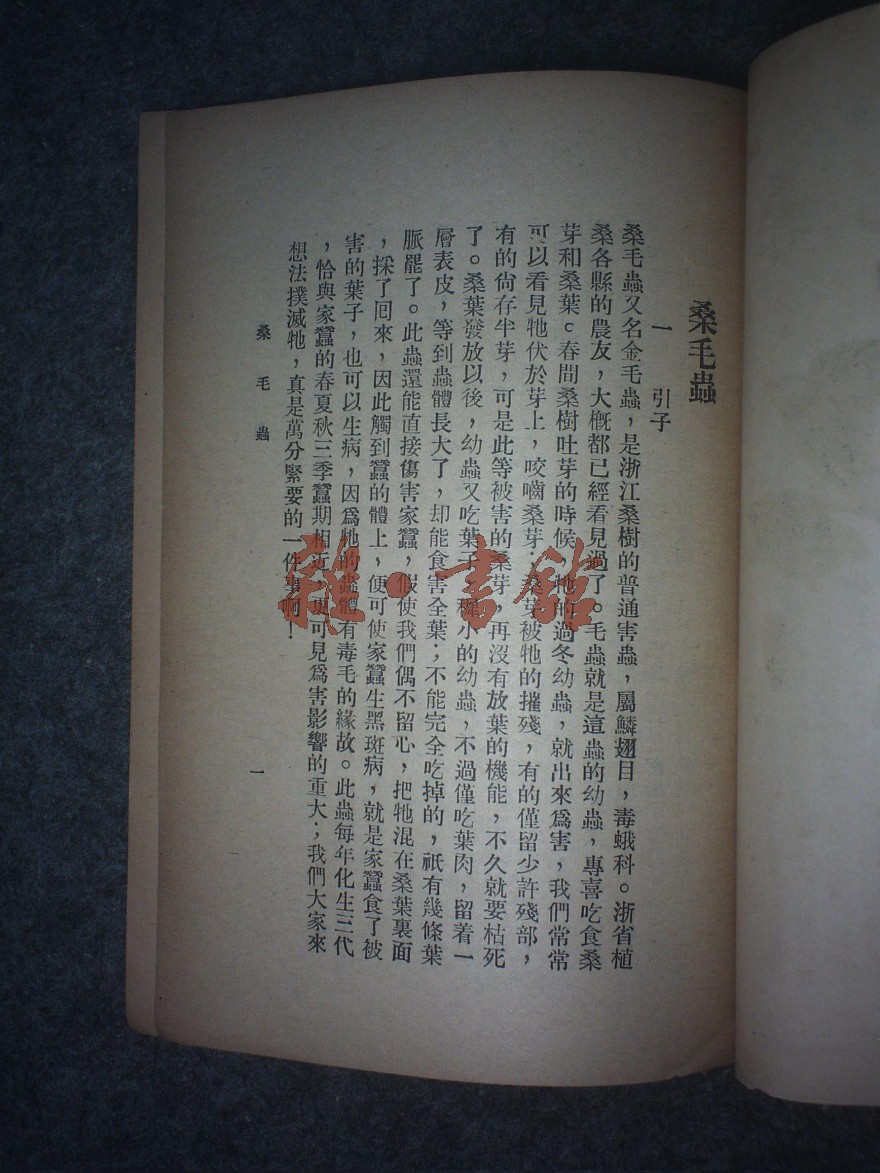 桑毛蟲
一 引子
桑毛蟲又名金毛蟲，是浙江桑樹的普通害蟲，屬鱗翅目，毒蛾科。浙省植
桑各縣的農友，大概都已經看見過了。毛蟲就是這蟲的幼蟲，專喜吃食桑
芽和桑葉。春間桑樹吐芽的時候，牠的過冬幼蟲，就出來爲害，我們常常
可以看見牠伏於芽上，咬嚙桑芽；桑芽被牠的摧殘，有的僅留少許殘部，
有的尙存半芽，可是此等被害的桑芽，再沒有放葉的機能，不久就要枯死
了。桑葉發放以後，幼蟲又吃葉子，稚小的幼蟲，不過僅吃葉肉，留着一
層表皮，等到蟲體長大了，却能食害全葉；不能完全吃掉的，祇有幾條葉
脈罷了。此蟲還能直接傷害家蠶，假使我們偶不留心，把牠混在桑葉裏面
，採了囘來，因此觸到蠶的體上，便可使家蠶生黑斑病，就是家蠶食了被
害的葉子，也可以生病，因爲牠的蟲體有毒毛的緣故。此蟲每年化生三代
，恰與家蠶的春夏秋三季蠶期相近，更可見爲害影響的重大；我們大家來
想法撲滅牠，真是萬分緊要的一件事啊！
桑毛蟲
一
雜·書館